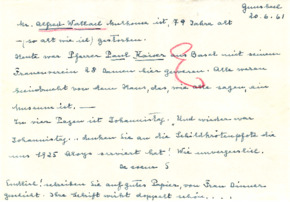 Gunsbach
20.6.61
Mr. Alfred Wallace Anthonee ist, 79 Jahre alt
— (so alt wie ich) gestorben.
Heute war Pfarrer Paul Kaiser aus Basel mit seinem
Frauenverein 28 Damen hier gewesen. Alle waren
beeindruckt von dem Haus, das, wie alle sagen, ein
Museum ist, —
In vier Tagen ist Johannistag. Und wieder war
Johannistag.. denken Sie an die Schildkrötenpfote die
uns 1925 Aloys serviert hat! Wie unvergesslich.
De coeur S
Endlich, schreiben Sie auf gutes Papier, von Frau Dinner
geschickt. Ihre Schrift wirkt doppelt schön....